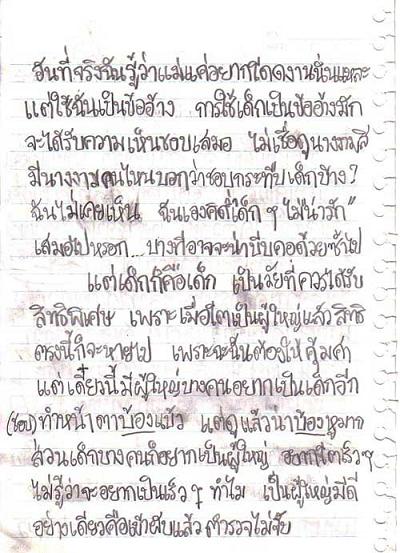 อันที่จริงฉันรู้ว่าแม่แค่อยากโดดงานนั่นแหละ
แต่ใช้ฉันเป็นข้ออ้าง การใช้เด็กเป็นข้ออ้างมัก
จะได้รับความเห็นชอบเสมอ ไม่เชื่อดูนางงามสิ
มีนางงามคนไหนบอกว่าชอบกระทืบเด็กบ้าง?
ฉันไม่เคยเห็น ฉันเองคิดว่าเด็ก ๆ ไม่น่ารัก"
เสมอไปหรอก... บางทีอาจจะน่าบีบคอด้วยซ้ำไป
แต่เด็กก็คือเด็ก เป็นวัยที่ควรได้รับ
สิทธิพิเศษ เพราะเมื่อโตเป็นผู้ใหญ่แล้วสิทธิ
ตรงนี้ก็จะหายไป เพราะฉะนั้นต้องใช้ให้คุ้มค่า
แต่เดี๋ยวนี้มีผู้ใหญ่บางคนอยากเป็นเด็กอีก
(ชอบ) ทำหน้าตาบ้องแบ๊ว แต่ดูแล้วน่าบ้องหูมาก
ส่วนเด็กบางคนก็อยากเป็นผู้ใหญ่ อยากโตเร็ว ๆ
ไม่รู้ว่าจะอยากเป็นเร็ว ๆ ทำไม เป็นผู้ใหญ่มีดี
อย่างเดียวคือเข้าผับแล้วตำรวจไม่จับ